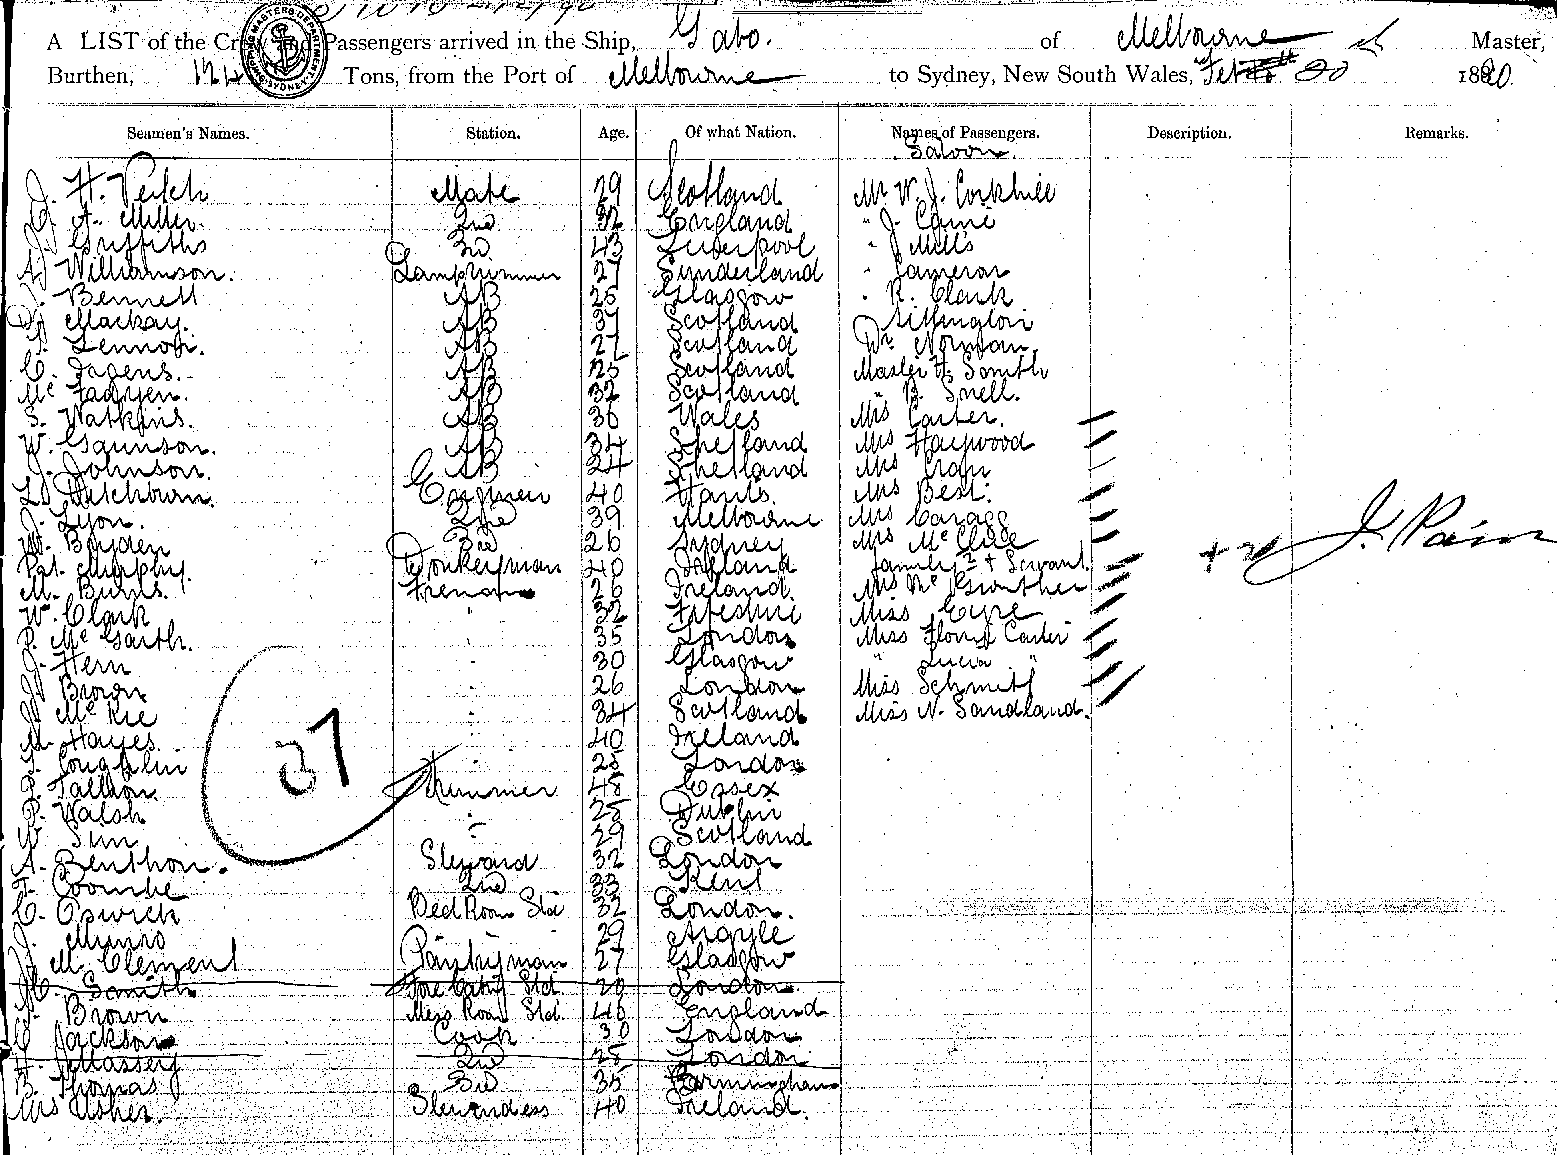 A LIST of the Crew and Passengers arrived in the Ship, Gabo. of Melbourne Master,
Burthen, Tons, from the Port of Melbourne to Sydney, New South Wales, 20 1890.
Seamen's Names. Station. Age. Of what Nation. Names of Passengers. Description. Remarks.
Saloon.
J. H. Veitch Mate 29 Scotland Mr W. J. Corkhill
A. Miller 2nd 32 England " J. Caine
J. Griffiths 3rd 43 Liverpool " J Mills
A. Williamson. Lamptrimmer 27 Sunderland " Cameron
Bennett AB 25 Glasgow " R. Clark
Mackay. AB 37 Scotland
Lennon. AB 27 Scotland Dr Norman
C. AB 25 Scotland Master H. Smith
Mc Fadyen. AB 32 Scotland " B. Snell.
S. Watkins. AB 36 Wales Mrs Carter.
W. Gaunson. AB 34 Shetland Mrs Haywood
J. Johnson. AB 24 Shetland Mrs
L. Ditchburn. Engineer 40 Hants. Mrs Best.
J. Lyon. 2nd 39 Melbourne Mrs
W. Boyden 3rd 26 Sydney Mrs Mc
Pat. Murphy. Donkeyman 40 Ireland family 2 + Servant
M. Burns. Fireman 26 Ireland. Mrs Mc
W. Clark " 32 Fifeshire Miss Eyre
P. Mc Garth. " 35 London Miss Florence Carter
J. Hern " 30 Glasgow " Lucia "
J. Brown " 26 London Miss Schmitt
J. Mc Kie " 34 Scotland Miss N. Sandland.
M. Hayes. " 40 Ireland
Coughlin " 28 London
P. Fallon. Trimmer 48 Essex
P. Walsh " 25 Dublin
W. Sim " 29 Scotland
A. Benthon. Steward 32 London
F. Coombe 2nd 33 Kent
C. Oswick Bed Room Std 32 London.
J. Munro 29 Argyle
M. Clement Pantryman 27 Glasgow
Smith Fore Cabin Std. 20 London.
Brown Mess Room Std. 46 England
C. Jackson Cook 30 London
H. Massey 2nd 25 London
B. Thomas 3rd 35 Birmingham
Mrs Usher. Stewardess 40 Ireland.
37